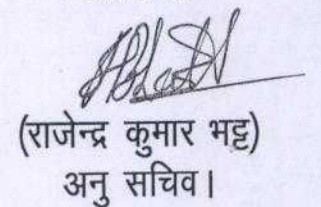 (राजेन्द्र कुमार भट्ट)
अनु सचिव।